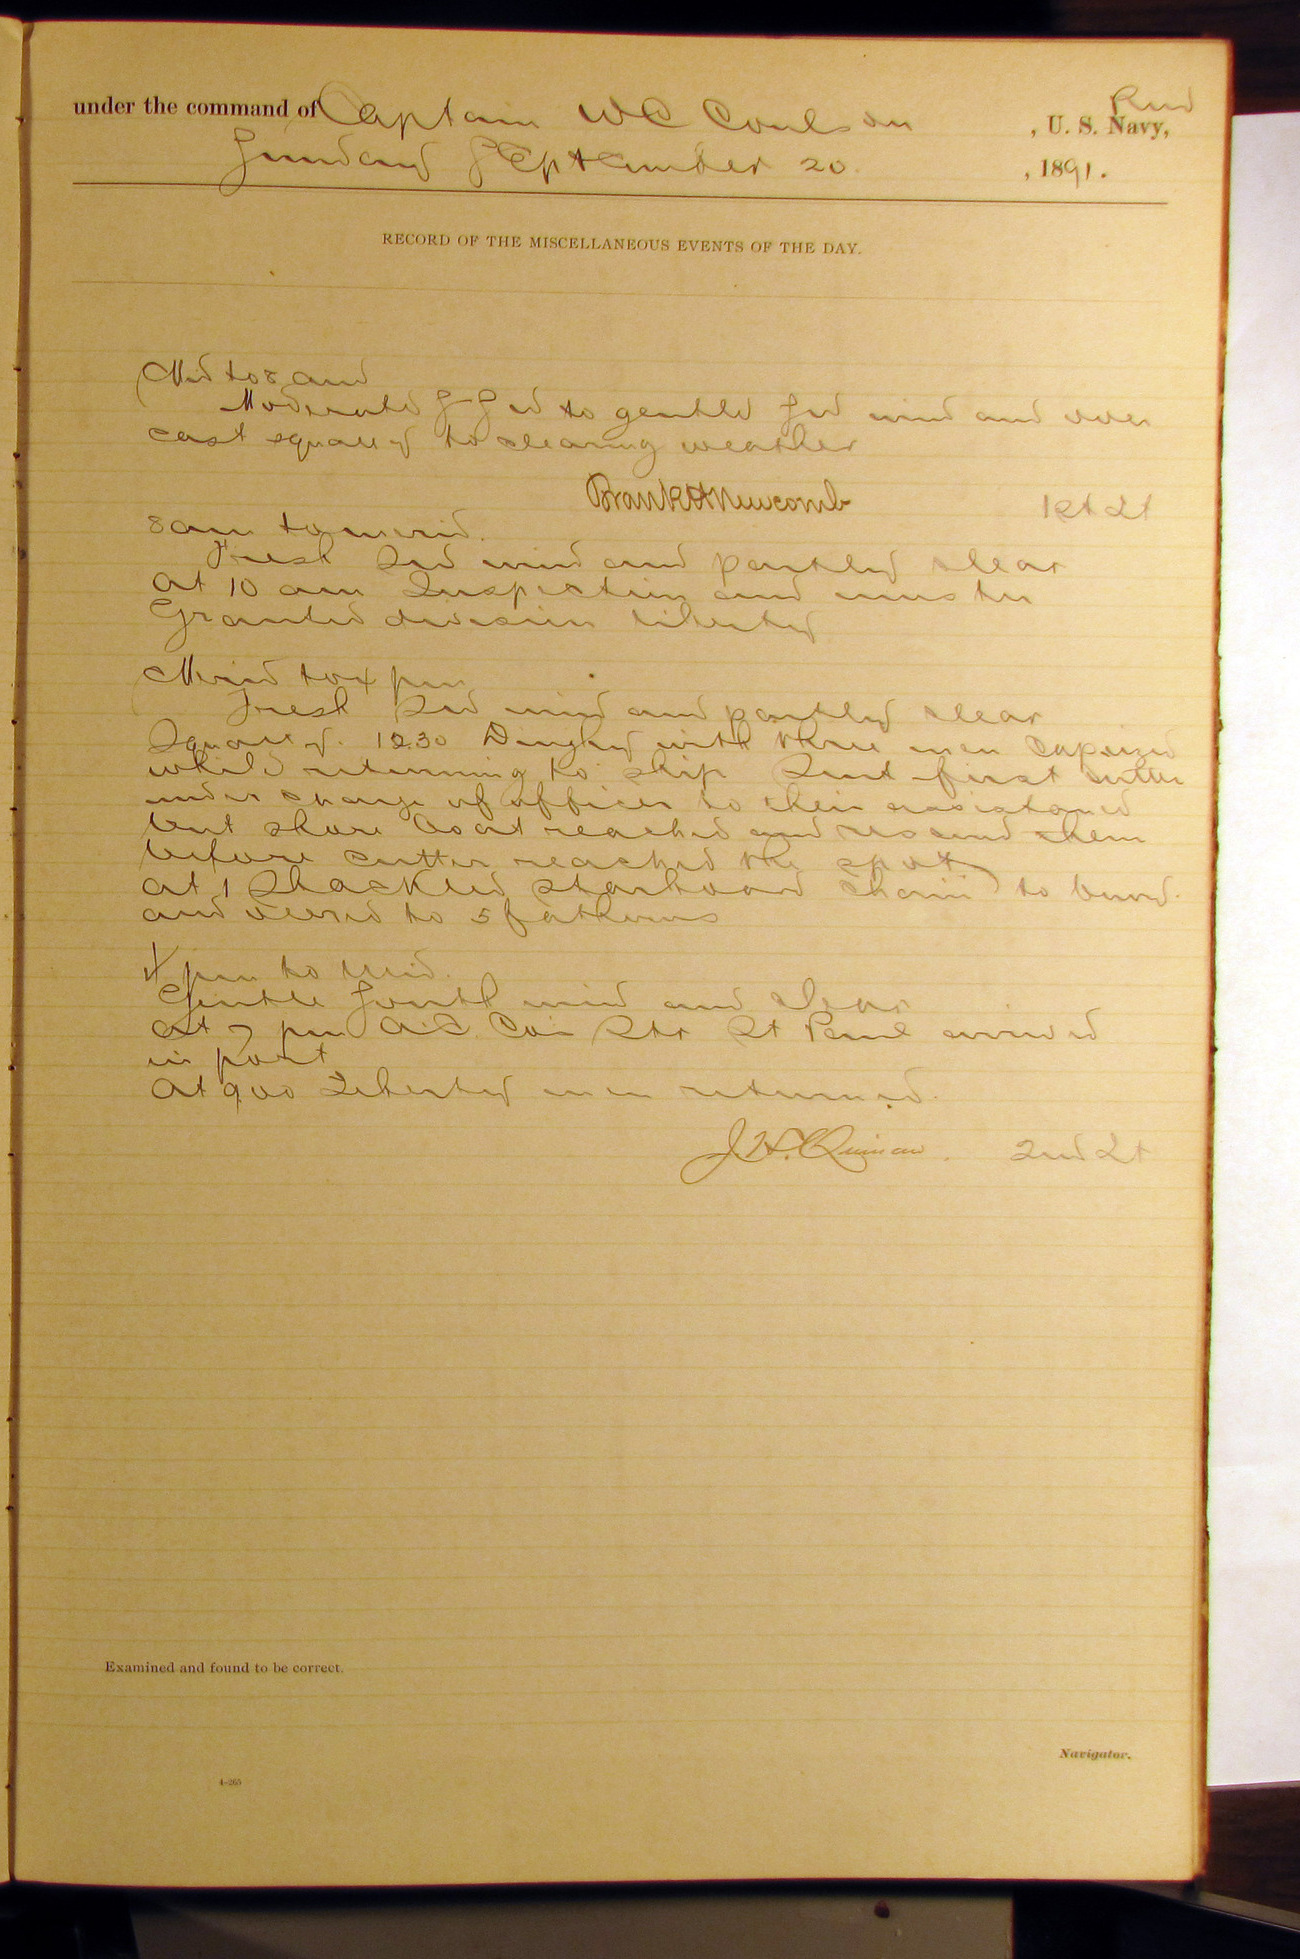 under the command of Captain W C Coulson, U. S. Navy,
Sunday September 20, 1891.
RECORD OF THE MISCELLANEOUS EVENTS OF THE DAY.
Mid to 8 am
Moderate to gentle wind and over
cast squally to clearing weather
Frank H Newcomb 1st Lt
8 am to merid.
Fresh wind and partly clear
At 10 am Inspection and muster
Granted division liberty
Merid to 4 pm
Fresh wind and partly clear
Squally. 12.30 Dinghy with three men capsized
while returning to ship Sent first cutter
under charge of officer to their assistance
but shore boat reached and rescued them
before cutter reached the spot
at 1 Shackled starboard chain to buoy.
and veered to 5 fathoms
4 pm to Mid.
Gentle South wind and clear
at 7 pm A.C. Co's Str St Paul arrived
in port
At 9.00 Liberty men returned.
J H. Quinan. 2nd Lt
Examined and found to be correct.
Navigator.
4-265